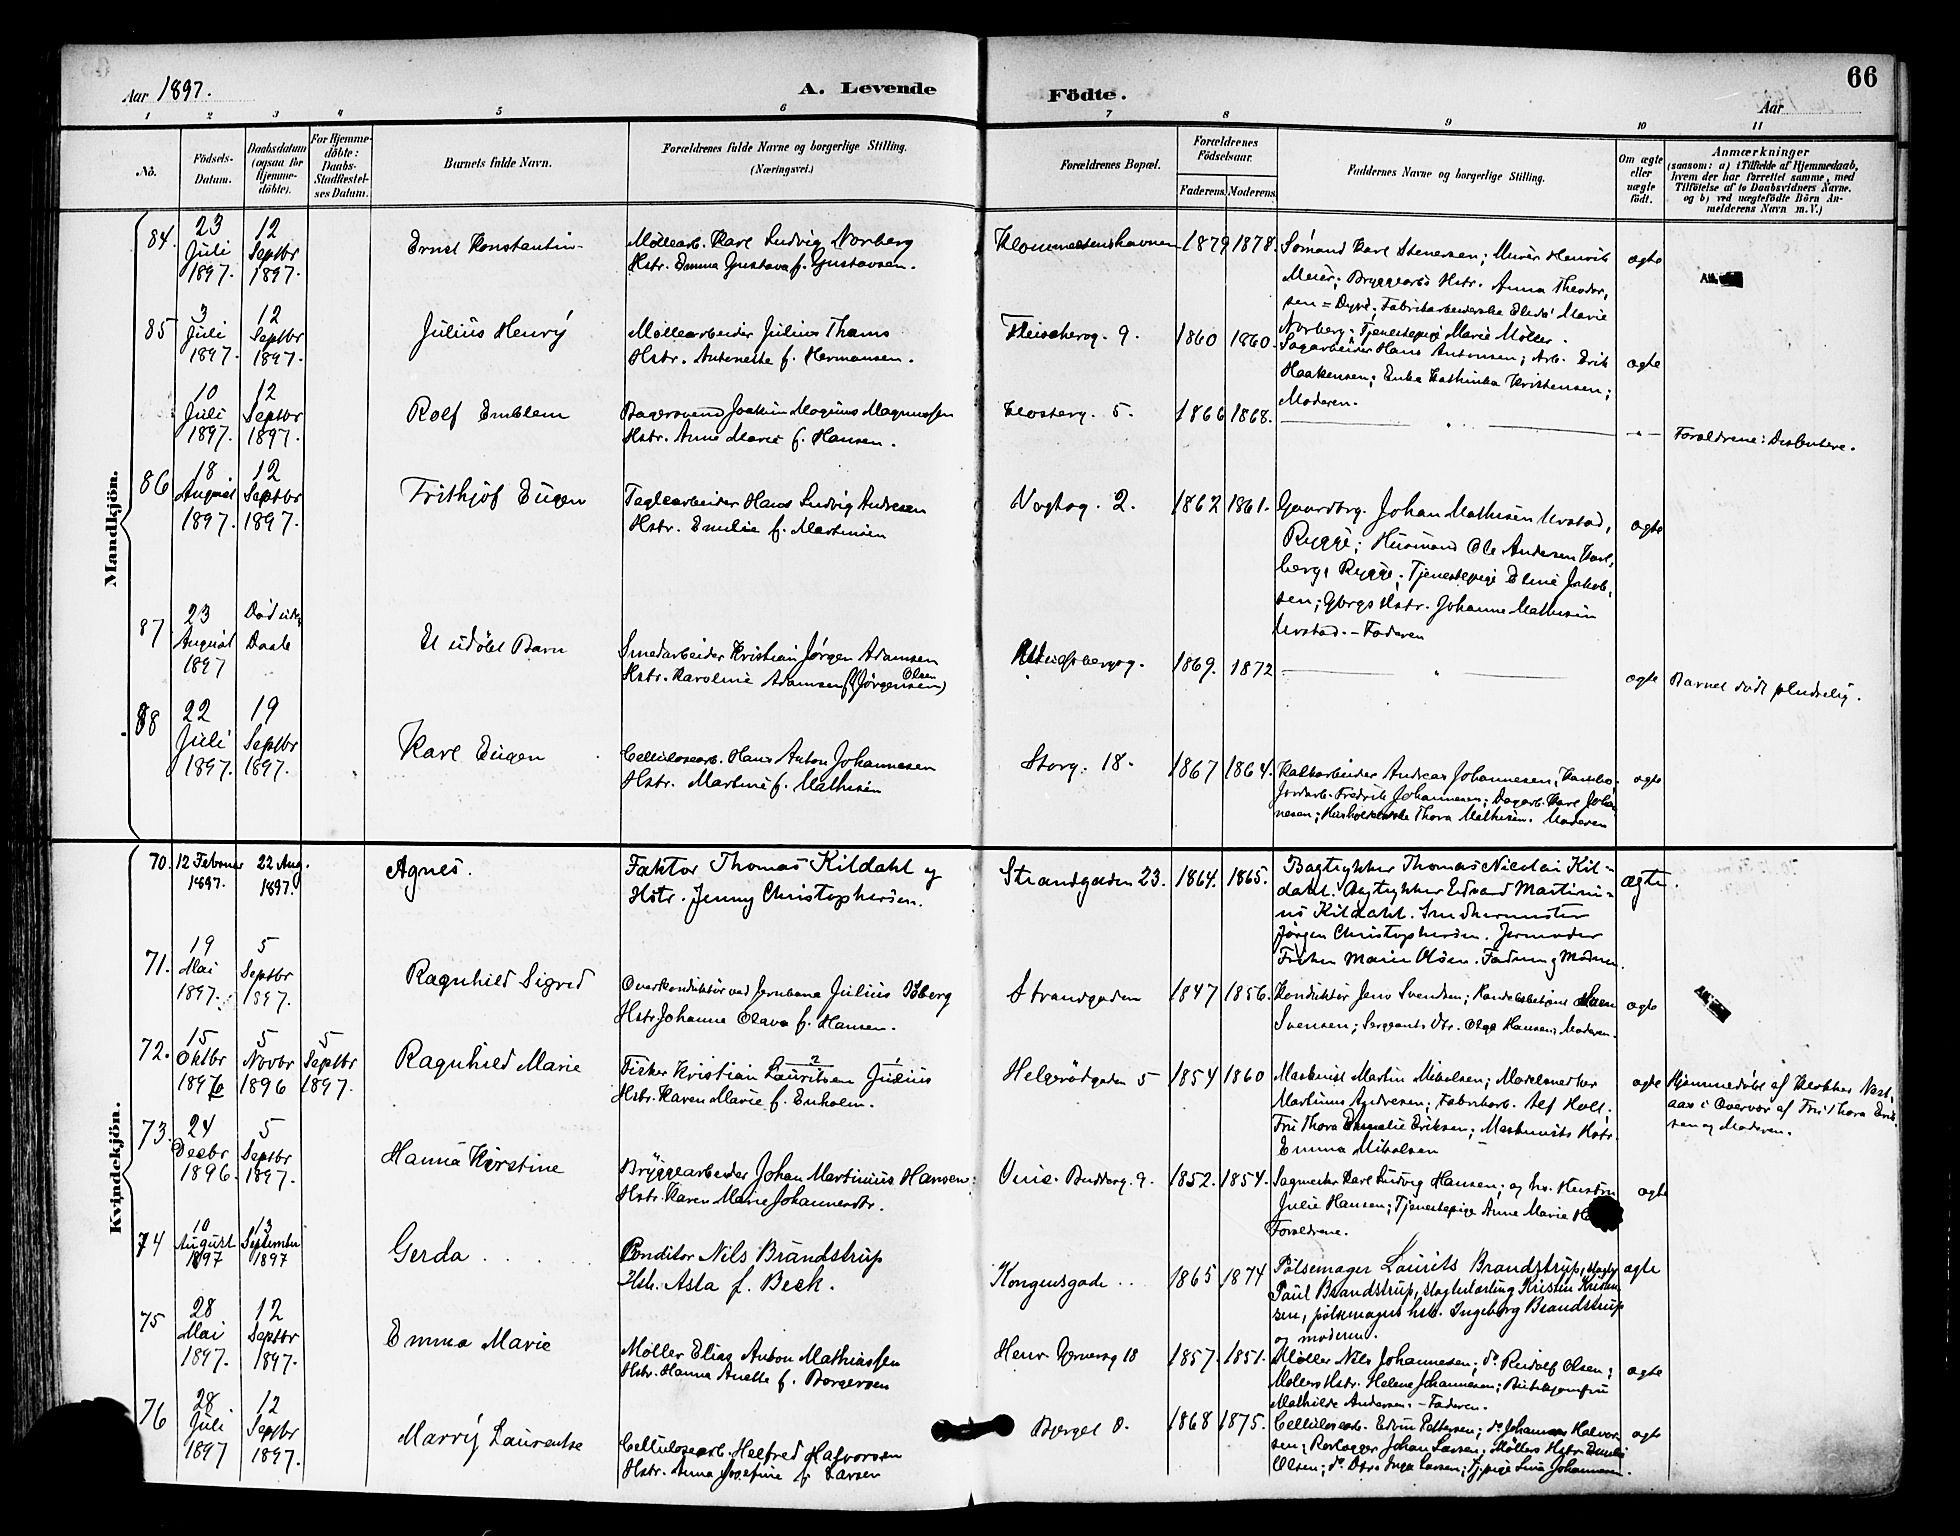 66
Aar 1897.
A. Levende
Födte.
Aar
1 2 3 4 5 6 7 8 9 10 11
No.
Födsels-
Datum.
Daabsdatum
(ogsaa for
Hjemme-
döbte).
For Hjemme-
döbte:
Daabs-
Stadfæstel-
ses Datum.
Barnets fulde Navn.
Forældrenes fulde Navne og borgerlige Stilling.
(Næringsvei.)
Forældrenes Bopæl.
Forældrenes
Födselsaar.
Faderens. Moderens.
Faddernes Navne og borgerlige Stilling.
Om ægte
eller
uægte
födt.
Anmærkninger
(saasom: a) i Tilfælde af Hjemmedaab,
hvem der har forrettet samme, med
Tilföielse af to Daabsvidners Navne.
og b) ved uægtefödte Börn An-
melderens Navn m. V.)
Mandkjön.
84. 23 Juli 1897. 12 Septbr 1897.
Ernst Konstantin
Møllearb. Karl Ludvig Norberg
Hstr. Emma Gustava f. Gustavsen.
1879 1878.
Sømand Karl Stenersen; Murer Henrik
Meier; Bryggearbs Hstr. Anna Theodor-
sen = Dyrd; Fabrikarbeiderske Marie
Norberg; Tjenestepige Marie Møller.
ægte
85 3 Juli 1897. 12 Septbr 1897.
Julius Henrÿ
Møllearbeider Julius Thams
Hstr. Antonette f. Hermansen.
Fleischerg. 9.
1860 1860.
Sagarbeider Hans Antonsen; Arb. Erik
Haakensen; Enke Kathinka Kristensen;
Moderen.
ægte
10 Juli 1897. 12 Septbr 1897.
Rolf Emblem
Bagersvend Joakim Magnus Magnussen
Hstr. Anne Marie f. Hansen.
Klosterg. 5.
1866 1868.
Forældrene: Dissentere.
86 18 August 1897. 12 Septbr 1897.
Frithjof Eugen
Teglarbeider Hans Ludvig Andresen
Hstr. Emilie f. Martinsen
Vogtsg. 2.
1862 1861.
Gaardbrg. Johan Mathisen Urstad,
Rygge; Husmand Ole Andersen Karl-
berg, Rygge; Tjenestepige Eline Jakob-
sen; Gbrgs Hstr. Johanne Mathisen
Urstad. - Faderen
ægte
87 23 August 1897 Død uden Daab
Et udöbt Barn
Smedarbeider Kristian Jørgen Adamsen
Hstr. Karoline Adamsen f. (Jørgensen) Olsen
1869. 1872
ægte
Barnet døde pludselig.
88 22 Juli 1897. 19 Septbr 1897.
Karl Eugen
Cellulosearb. Hans Anton Johannesen
Hstr. Martine f. Mathisen
Storg. 18.
1867 1864.
Kalkarbeider Andreas Johannesen, Kambo;
Jordarb. Fredrik Johannesen; Dagarb. Karl Johan-
nesen; Husholderske Thora Mathisen. Moderen
ægte
Kvindekjön.
70. 12 Februar 1897. 22 Aug. 1897.
Agnes.
Faktor Thomas Kildahl og
Hstr. Jenny Christophersen.
Strandgaden 23.
1864. 1865.
Bogtrykker Thomas Nicolai Kil-
dahl. Bogtrykker Edvard Martini-
us Kildahl. Smedhermester
Jörgen Christophersen. Jormoder
Frøken Marie Olsen. Faderen og Moderen.
ægte.
71. 19 Mai 1897. 5 Septbr 1897.
Ragnhild Sigrid
Overkonduktør ved Jernbane Julius Isberg
Hstr Johanne Olava f. Hansen.
Strandgaden
1847 1856.
Konduktør Jens Svendsen; Handelsbetjent
Svensen; Sergeants Dtr. Olga Hansen; Moderen.
ægte
72. 15 Oktbr 1896 5 Novbr 1896 5 Septbr 1897.
Ragnhild Marie
Fisker Kristian Lauritsen Julius
Hstr. Karen Marie f. Enholm.
Helgerödgaden 5
1854 1860
Maskinist Martin Mikelsen; Modelsnedker
Martinus Andresen; Fabrikarb. Alf Holt;
Fru Thora Emelie Eriksen; Maskinists Hstr.
Emma Mikelsen
ægte
Hjemmedøbt af Klokker Nøst-
aas i Overvær af Fru Thora Erik-
sen og Moderen.
73. 24 Decbr 1896. 5 Septbr 1897.
Hanna Kirstine
Brÿggearbeider Johan Martinius Hansen;
Hstr. Karen Marie Johannesdtr.
9.
1852. 1854.
Sagmester Karl Ludvig Hansen; og hs. Hustru
Julie Hansen; Tjenestepige Anne Marie
Forældrene.
ægte
74 10 August 1897 13 September 1897
Gerda
Conditor Nils Brandstrup
Hst. Asta f. Beck.
Kongensgade
1865 1874
Pölsemager Laurits Brandstrup,
Paul Brandstrup, slagterlærling Kristen Kristen-
sen, pölsemagers hst. Ingeborg Brandstrup
og moderen.
ægte
75 28 Mai 1897. 12 Septbr 1897.
Emma Marie
Møller Elias Anton Mathiassen
Hstr. Hanna Anette f. Borgersen
Henr Gernersg 18
1857. 1851.
Møller Nils Johannesen; do Rudolf Olsen;
Møllers Hstr. Helene Johannesen; Butikjomfru
Mathilde Andersen. - Faderen.
ægte
76 28 Juli 1897 12 Septbr 1897.
Marrÿ Laurentse
Cellulosearb. Helfred Halvorsen
Hstr. Anna Josefine f. Larsen
Bjerget 8.
1868 1875.
Cellulosearb. Edvin Pettersen; do Johannes Halvor-
sen; Johan Larsen; Møllers Hstr Emelie
Olsen; do Dtr. Inga Larsen; Tj.pige Lina Johannesen.
ægte